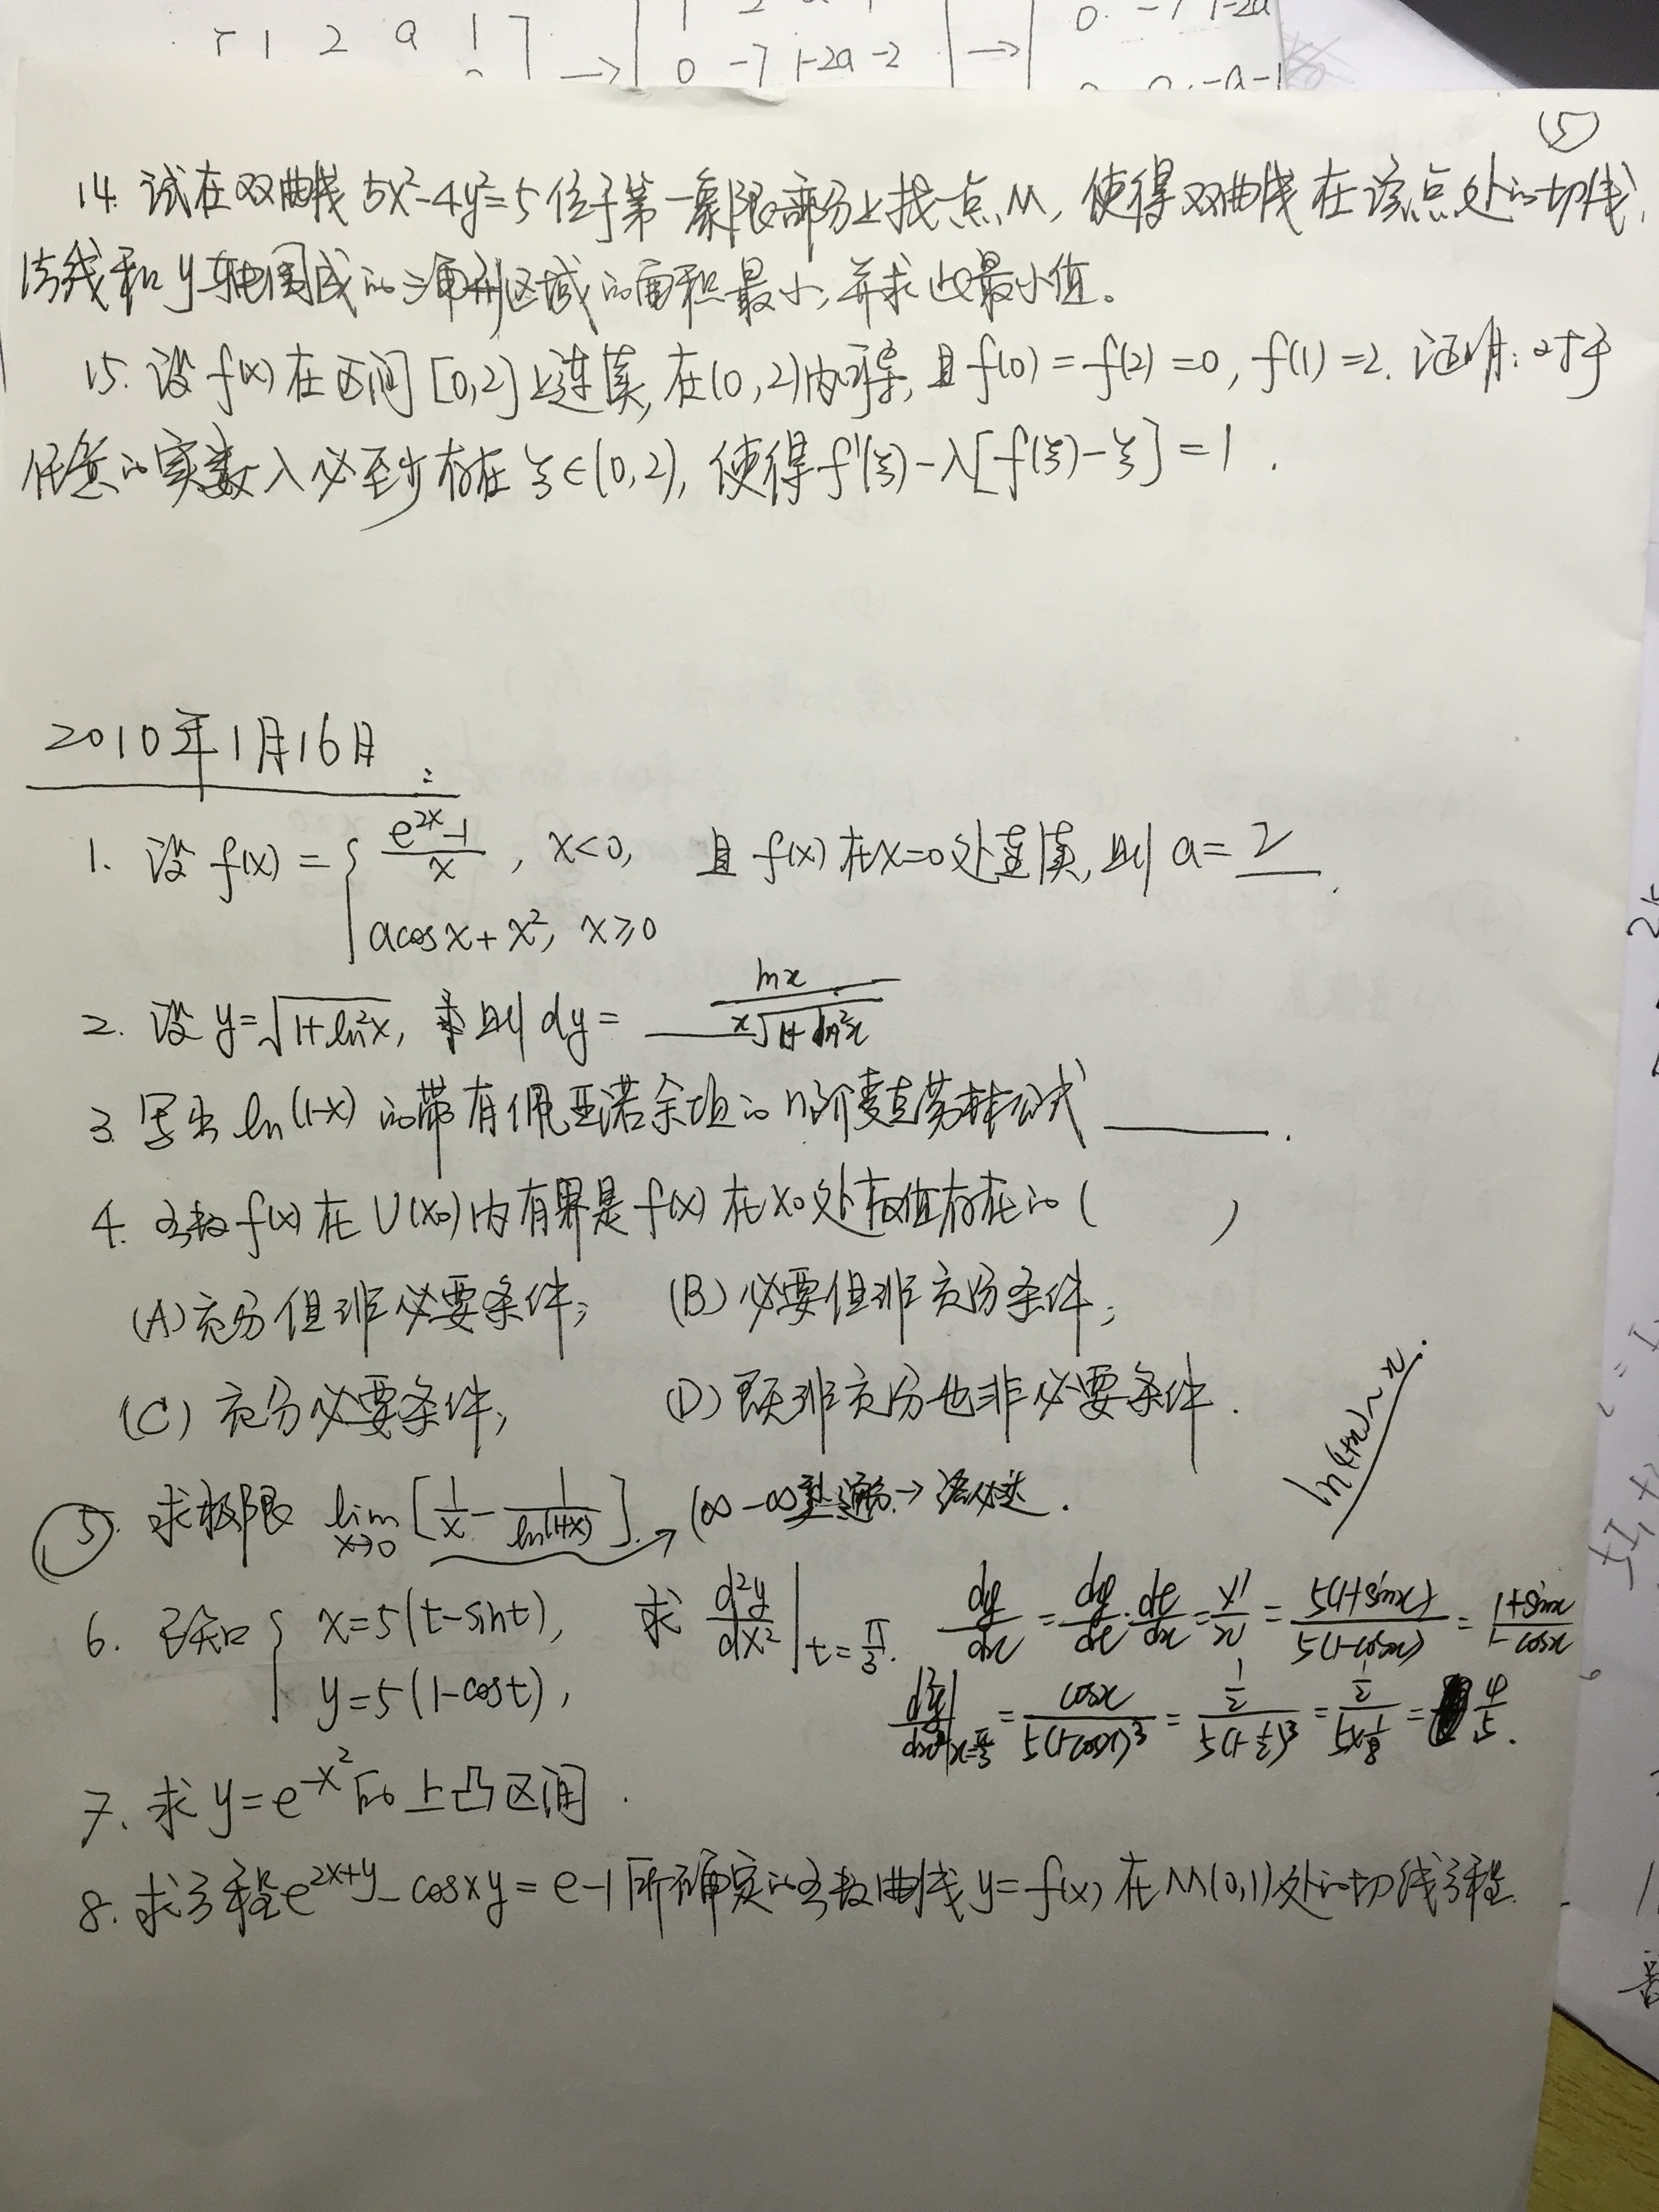 1 2 a 1
0 -7 1-2a -2
→
→
0 -7 1-2a
-a-1
⑤
14. 试在双曲线 5x²-4y²=5 位于第一象限部分上找一点M, 使得双曲线在该点处的切线,
法线和y轴围成的三角形区域的面积最小, 并求此最小值。
15. 设 f(x) 在区间 [0,2] 上连续, 在(0,2)内可导, 且 f(0)=f(2)=0, f(1)=2. 证明: 对于
任意的实数 λ 必至少存在 ξ∈(0,2), 使得 f'(ξ)-λ[f(ξ)-ξ]=1.
2010年1月16日:
1. 设 f(x)={ (e^{2x}-1)/x, x<0, 且 f(x) 在x=0处连续, 则 a=2.
acosx+x², x≥0
2. 设 y=√(1+ln²x), 则 dy= lnx/(x√(1+ln²x))
3. 写出 ln(1-x) 的带有佩亚诺余项的n阶麦克劳林公式______.
4. 函数 f(x) 在 U(x₀) 内有界是 f(x) 在 x₀ 处极值存在的( )
(A) 充分但非必要条件; (B) 必要但非充分条件;
(C) 充分必要条件; (D) 既非充分也非必要条件.
ln(1+x)~x.
⑤. 求极限 lim_{x→0} [1/x - 1/ln(1+x)]. → (∞-∞型 通分→洛必达.
6. 已知{ x=5(t-sint), 求 d²y/dx² |_{t=π/3}. dy/dx = dy/dt·dt/dx = y'/x' = 5(1+sinx)/5(1-cosx) = 1+sinx/1-cosx
y=5(1-cost), d²y/dx² |_{x=π/3} = cosx/5(1-cosx)³ = ½/5(1-½)³ = ½/5×⅛ = 4/5.
7. 求 y=e^{-x²} 的上凸区间.
8. 求方程 e^{2x+y}-cosxy=e-1 所确定的函数曲线 y=f(x) 在 M(0,1)处的切线方程.